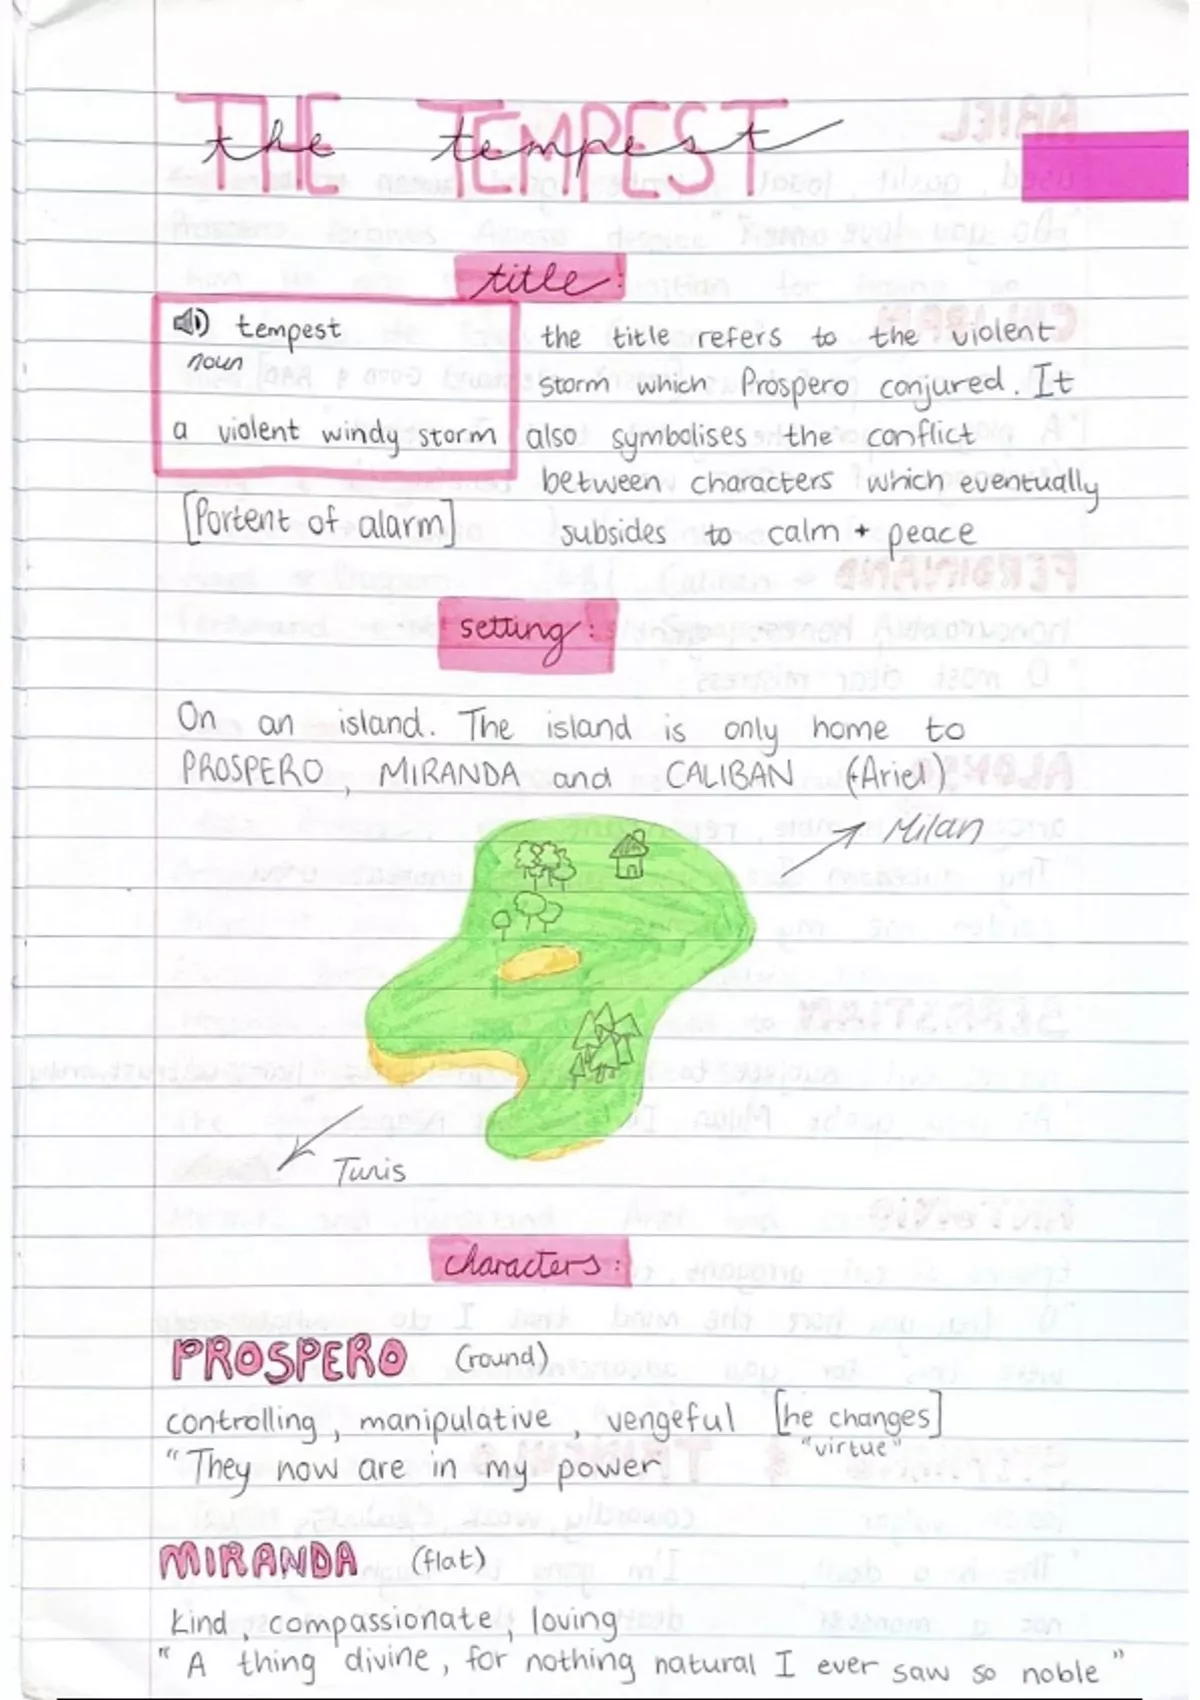 THE TEMPEST
the tempest
title:
tempest
noun
a violent windy storm
[Portent of alarm]
the title refers to the violent
storm which Prospero conjured. It
also symbolises the conflict
between characters which eventually
subsides to calm + peace
setting:
On an island. The island is only home to
PROSPERO, MIRANDA and CALIBAN (+Ariel)
Milan
Tunis
characters:
PROSPERO (round)
controlling, manipulative, vengeful [he changes]
"virtue"
"They now are in my power
MIRANDA (flat)
kind, compassionate, loving
"A thing divine, for nothing natural I ever saw so noble"